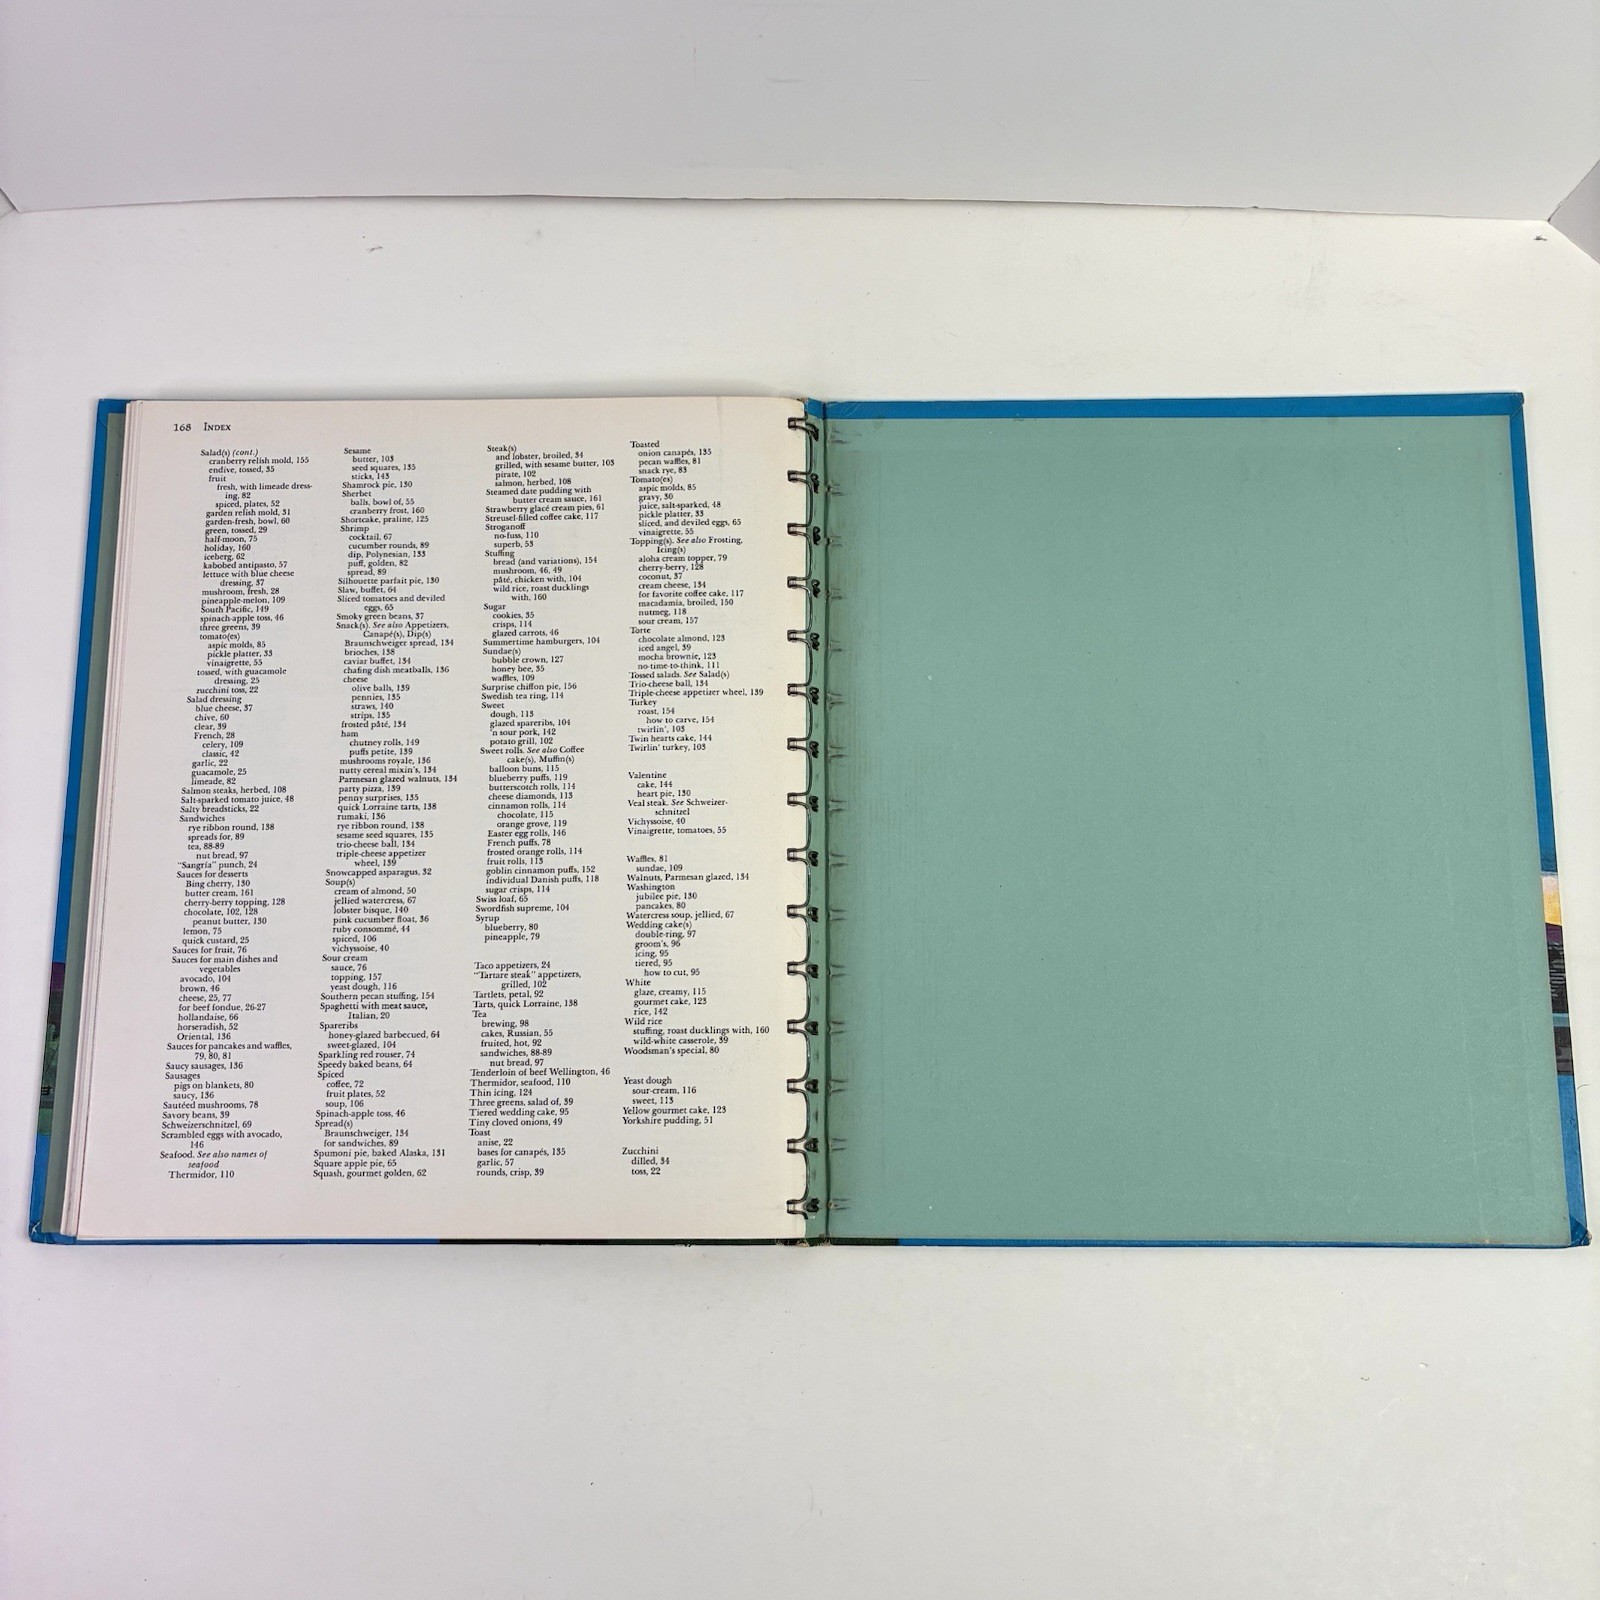 168 INDEX
Salad(s) (cont.)
cranberry relish mold, 155
endive, tossed, 35
fruit
fresh, with limeade dress-
ing, 82
spiced, plates, 52
garden relish mold, 31
garden-fresh, bowl, 60
green, tossed, 29
half-moon, 75
holiday, 160
iceberg, 62
kabobed antipasto, 57
lettuce with blue cheese
dressing, 37
mushroom, fresh, 28
pineapple-melon, 109
South Pacific, 149
spinach-apple toss, 46
three greens, 39
tomato(es)
aspic molds, 85
pickle platter, 33
vinaigrette, 55
tossed, with guacamole
dressing, 25
zucchini toss, 22
Salad dressing
blue cheese, 37
chive, 60
clear, 39
French, 28
celery, 109
classic, 42
garlic, 22
guacamole, 25
limeade, 82
Salmon steaks, herbed, 108
Salt-sparked tomato juice, 48
Salty breadsticks, 22
Sandwiches
rye ribbon round, 138
spreads for, 89
tea, 88-89
nut bread, 97
"Sangría" punch, 24
Sauces for desserts
Bing cherry, 130
butter cream, 161
cherry-berry topping, 128
chocolate, 102, 128
peanut butter, 130
lemon, 75
quick custard, 25
Sauces for fruit, 76
Sauces for main dishes and
vegetables
avocado, 104
brown, 46
cheese, 25, 77
for beef fondue, 26-27
hollandaise, 66
horseradish, 52
Oriental, 136
Sauces for pancakes and waffles,
79, 80, 81
Saucy sausages, 136
Sausages
pigs on blankets, 80
saucy, 136
Sautéed mushrooms, 78
Savory beans, 39
Schweizerschnitzel, 69
Scrambled eggs with avocado,
146
Seafood. See also names of
seafood
Thermidor, 110
Sesame
butter, 103
seed squares, 135
sticks, 143
Shamrock pie, 130
Sherbet
balls, bowl of, 55
cranberry frost, 160
Shortcake, praline, 125
Shrimp
cocktail, 67
cucumber rounds, 89
dip, Polynesian, 133
puff, golden, 82
spread, 89
Silhouette parfait pie, 130
Slaw, buffet, 64
Sliced tomatoes and deviled
eggs, 65
Smoky green beans, 37
Snack(s). See also Appetizers,
Canapé(s), Dip(s)
Braunschweiger spread, 134
brioches, 138
caviar buffet, 134
chafing dish meatballs, 136
cheese
olive balls, 139
pennies, 135
straws, 140
strips, 135
frosted pâté, 134
ham
chutney rolls, 149
puffs petite, 139
mushrooms royale, 136
nutty cereal mixin's, 134
Parmesan glazed walnuts, 134
party pizza, 139
penny surprises, 135
quick Lorraine tarts, 138
rumaki, 136
rye ribbon round, 138
sesame seed squares, 135
trio-cheese ball, 134
triple-cheese appetizer
wheel, 139
Snowcapped asparagus, 32
Soup(s)
cream of almond, 50
jellied watercress, 67
lobster bisque, 140
pink cucumber float, 36
ruby consommé, 44
spiced, 106
vichyssoise, 40
Sour cream
sauce, 76
topping, 157
yeast dough, 116
Southern pecan stuffing, 154
Spaghetti with meat sauce,
Italian, 20
Spareribs
honey-glazed barbecued, 64
sweet-glazed, 104
Sparkling red rouser, 74
Speedy baked beans, 64
Spiced
coffee, 72
fruit plates, 52
soup, 106
Spinach-apple toss, 46
Spread(s)
Braunschweiger, 134
for sandwiches, 89
Spumoni pie, baked Alaska, 131
Square apple pie, 65
Squash, gourmet golden, 62
Steak(s)
and lobster, broiled, 34
grilled, with sesame butter, 103
pirate, 102
salmon, herbed, 108
Steamed date pudding with
butter cream sauce, 161
Strawberry glacé cream pies, 61
Streusel-filled coffee cake, 117
Stroganoff
no-fuss, 110
superb, 53
Stuffing
bread (and variations), 154
mushroom, 46, 49
pâté, chicken with, 104
wild rice, roast ducklings
with, 160
Sugar
cookies, 35
crisps, 114
glazed carrots, 46
Summertime hamburgers, 104
Sundae(s)
bubble crown, 127
honey bee, 35
waffles, 109
Surprise chiffon pie, 156
Swedish tea ring, 114
Sweet
dough, 113
glazed spareribs, 104
'n sour pork, 142
potato grill, 102
Sweet rolls. See also Coffee
cake(s), Muffin(s)
balloon buns, 115
blueberry puffs, 119
butterscotch rolls, 114
cheese diamonds, 113
cinnamon rolls, 114
chocolate, 115
orange grove, 119
Easter egg rolls, 146
French puffs, 78
frosted orange rolls, 114
fruit rolls, 113
goblin cinnamon puffs, 152
individual Danish puffs, 118
sugar crisps, 114
Swiss loaf, 65
Swordfish supreme, 104
Syrup
blueberry, 80
pineapple, 79
Taco appetizers, 24
"Tartare steak" appetizers,
grilled, 102
Tartlets, petal, 92
Tarts, quick Lorraine, 138
Tea
brewing, 98
cakes, Russian, 55
fruited, hot, 92
sandwiches, 88-89
nut bread, 97
Tenderloin of beef Wellington, 46
Thermidor, seafood, 110
Thin icing, 124
Three greens, salad of, 39
Tiered wedding cake, 95
Tiny cloved onions, 49
Toast
anise, 22
bases for canapés, 135
garlic, 57
rounds, crisp, 39
Toasted
onion canapés, 135
pecan waffles, 81
snack rye, 83
Tomato(es)
aspic molds, 85
gravy, 30
juice, salt-sparked, 48
pickle platter, 33
sliced, and deviled eggs, 65
vinaigrette, 55
Topping(s). See also Frosting,
Icing(s)
aloha cream topper, 79
cherry-berry, 128
coconut, 37
cream cheese, 134
for favorite coffee cake, 117
macadamia, broiled, 150
nutmeg, 118
sour cream, 157
Torte
chocolate almond, 123
iced angel, 39
mocha brownie, 123
no-time-to-think, 111
Tossed salads. See Salad(s)
Trio-cheese ball, 134
Triple-cheese appetizer wheel, 139
Turkey
roast, 154
how to carve, 154
twirlin', 103
Twin hearts cake, 144
Twirlin' turkey, 103
Valentine
cake, 144
heart pie, 130
Veal steak. See Schweizer-
schnitzel
Vichyssoise, 40
Vinaigrette, tomatoes, 55
Waffles, 81
sundae, 109
Walnuts, Parmesan glazed, 134
Washington
jubilee pie, 130
pancakes, 80
Watercress soup, jellied, 67
Wedding cake(s)
double-ring, 97
groom's, 96
icing, 95
tiered, 95
how to cut, 95
White
glaze, creamy, 115
gourmet cake, 123
rice, 142
Wild rice
stuffing, roast ducklings with, 160
wild-white casserole, 39
Woodsman's special, 80
Yeast dough
sour-cream, 116
sweet, 113
Yellow gourmet cake, 123
Yorkshire pudding, 51
Zucchini
dilled, 34
toss, 22